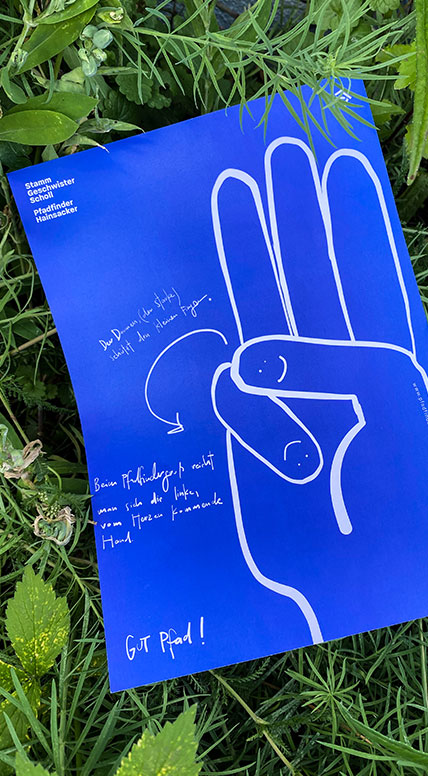 Stamm
Geschwister
Scholl
Pfadfinder
Hainsacker
Der Daumen (der Starke)
schützt den kleinen Finger.
Beim Pfadfindergruß reicht
man sich die linke,
vom Herzen kommende
Hand.
GUT Pfad!